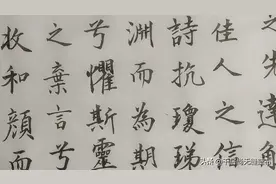 之先達解
佳人之信
詩抗瓊珶
淵而為期
兮懼斯靈
之棄言兮
收和顏而
头条